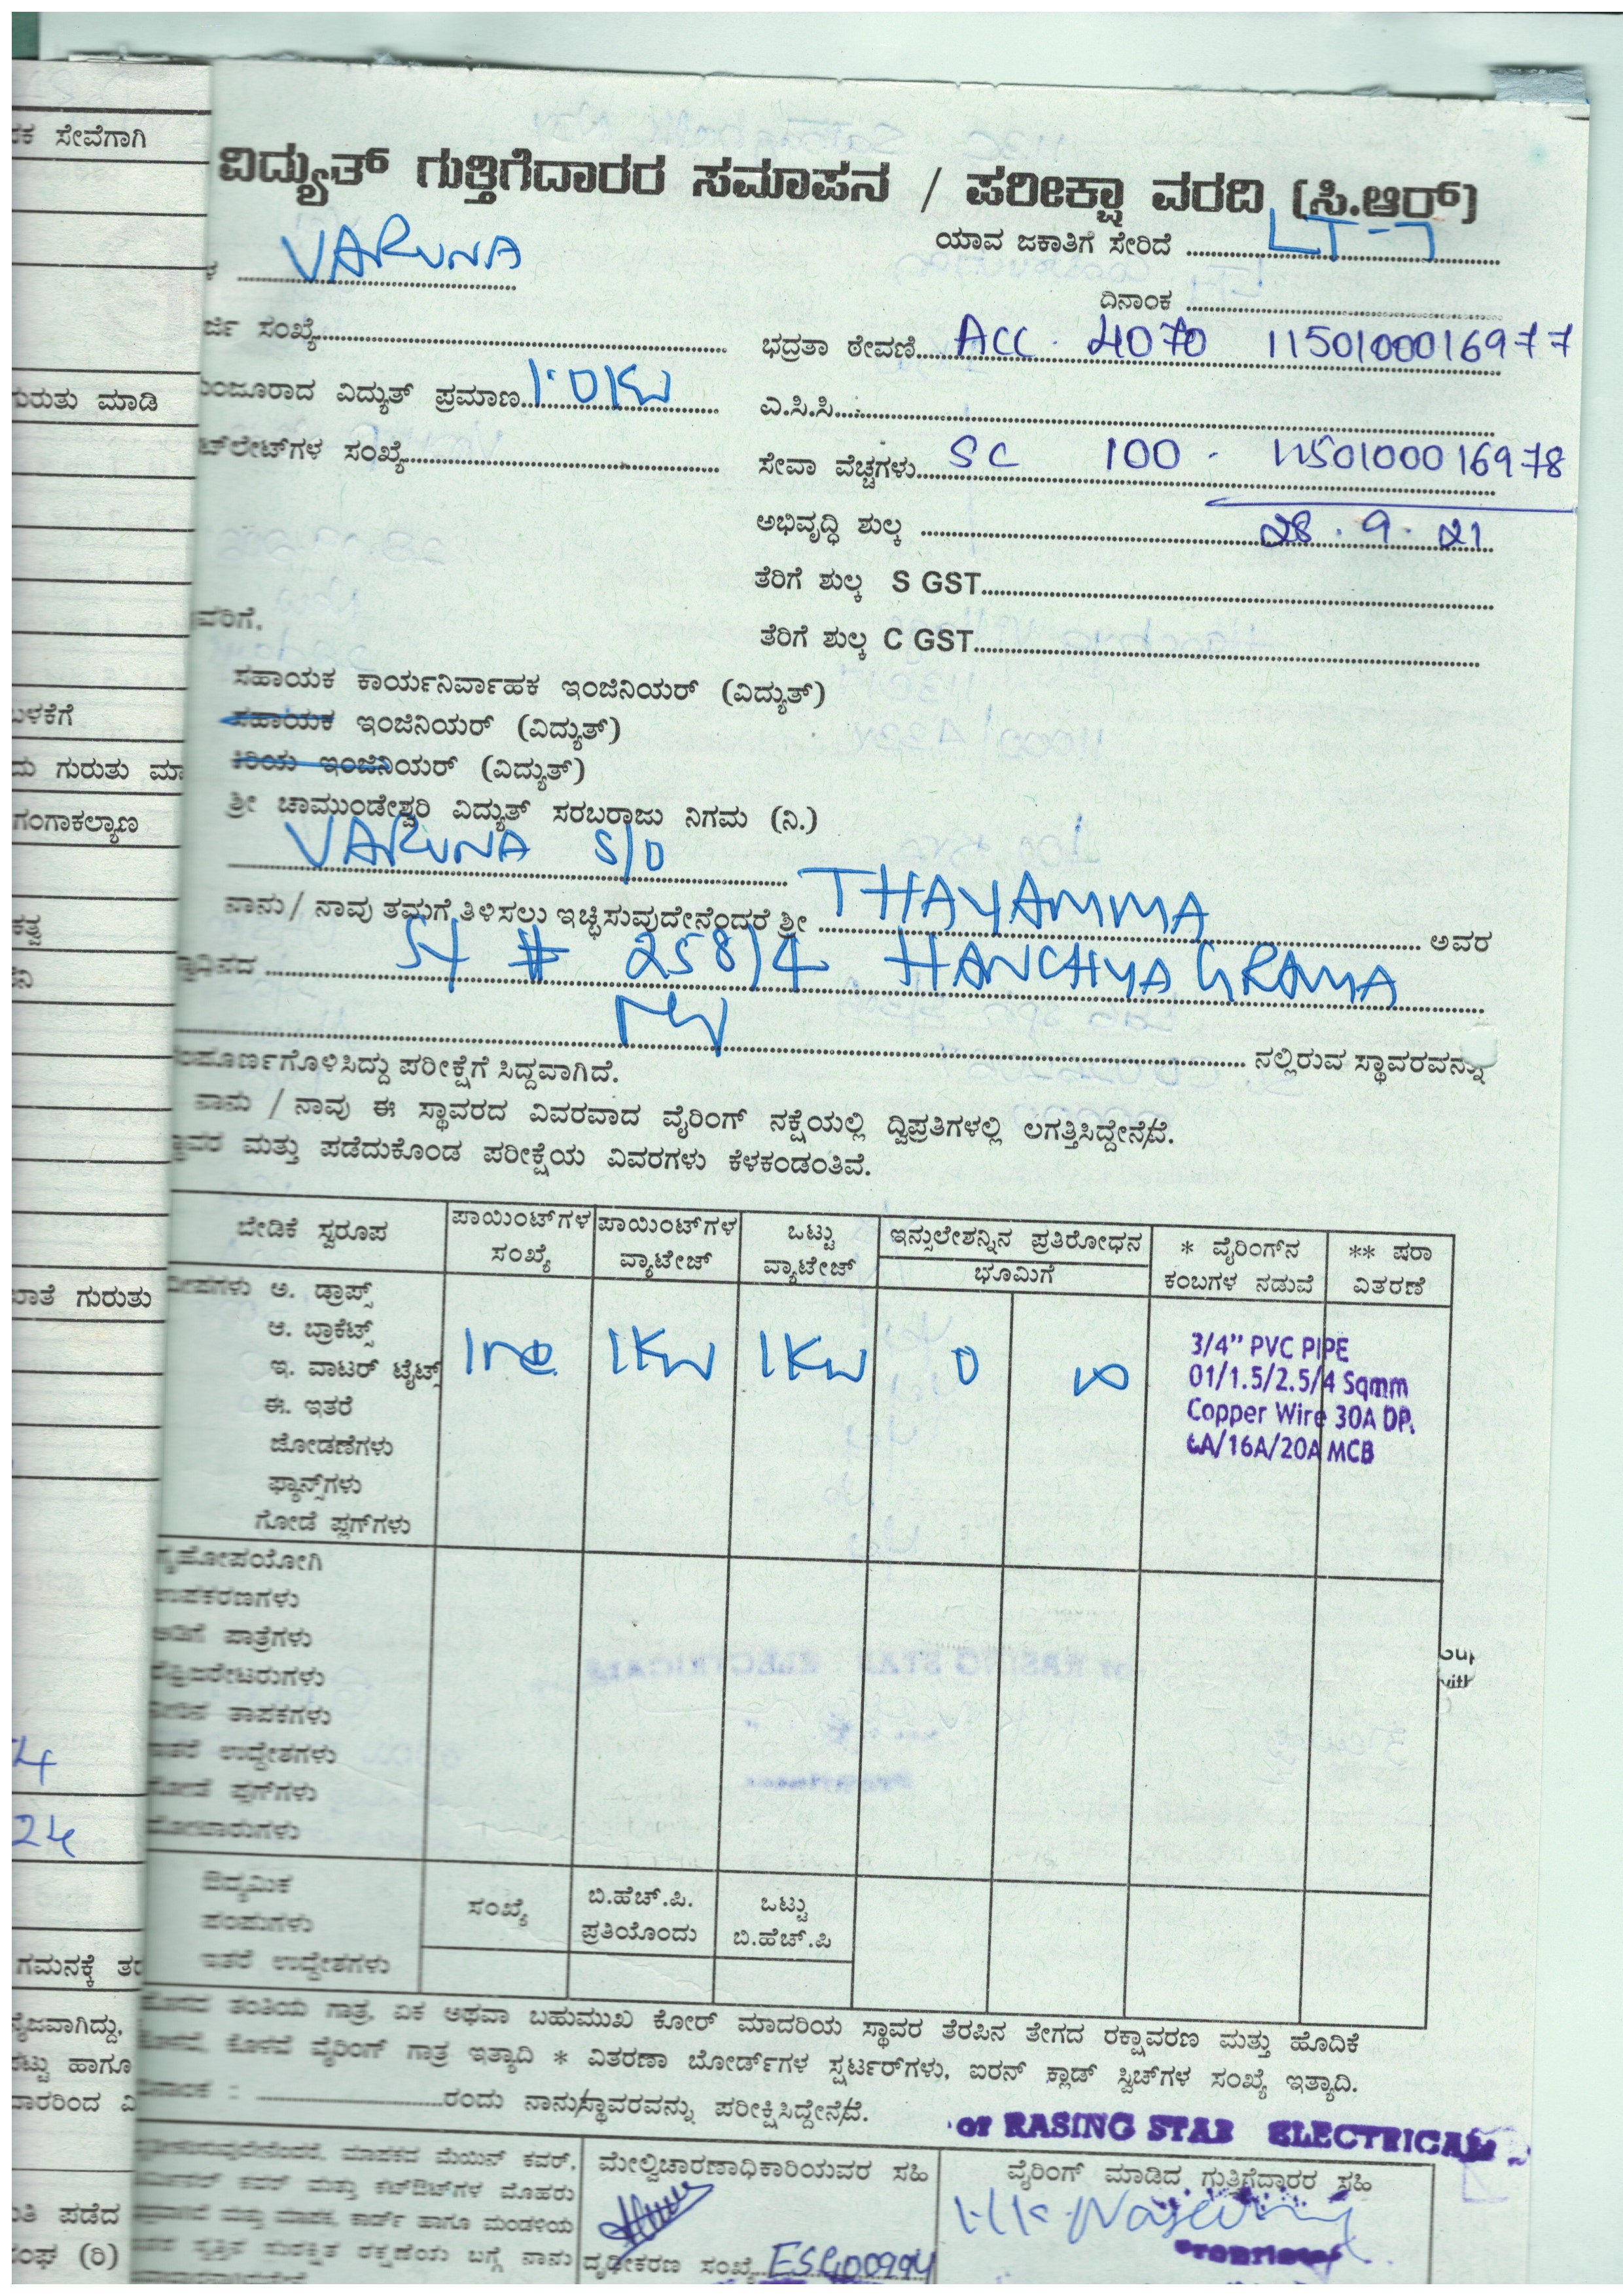 ಕ ಸೇವೆಗಾಗಿ
ವಿದ್ಯುತ್ ಗುತ್ತಿಗೆದಾರರ ಸಮಾಪನ / ಪರೀಕ್ಷಾ ವರದಿ (ಸಿ.ಆರ್)
ಯಾವ ಜಕಾತಿಗೆ ಸೇರಿದೆ LT-7
VARUNA
ದಿನಾಂಕ
ರ್ಜಿ ಸಂಖ್ಯೆ
ಭದ್ರತಾ ಠೇವಣಿ ACC. 4070 11501000016977
ಗುರುತು ಮಾಡಿ
ಮಂಜೂರಾದ ವಿದ್ಯುತ್ ಪ್ರಮಾಣ 1.0KW
ಎ.ಸಿ.ಸಿ
ಟ್‌ಲೇಟ್‌ಗಳ ಸಂಖ್ಯೆ
ಸೇವಾ ವೆಚ್ಚಗಳು SC 100 - 11501000016978
ಅಭಿವೃದ್ಧಿ ಶುಲ್ಕ 28.9.21
ತೆರಿಗೆ ಶುಲ್ಕ S GST
ವರಿಗೆ,
ತೆರಿಗೆ ಶುಲ್ಕ C GST
ಸಹಾಯಕ ಕಾರ್ಯನಿರ್ವಾಹಕ ಇಂಜಿನಿಯರ್ (ವಿದ್ಯುತ್)
ಬಳಕೆಗೆ
ಸಹಾಯಕ ಇಂಜಿನಿಯರ್ (ವಿದ್ಯುತ್)
ಗುರುತು ಮಾ
ಕಿರಿಯ ಇಂಜಿನಿಯರ್ (ವಿದ್ಯುತ್)
ಗಂಗಾಕಲ್ಯಾಣ
ಶ್ರೀ ಚಾಮುಂಡೇಶ್ವರಿ ವಿದ್ಯುತ್ ಸರಬರಾಜು ನಿಗಮ (ನಿ.)
VARUNA S/O
ನಾನು / ನಾವು ತಮಗೆ ತಿಳಿಸಲು ಇಚ್ಛಿಸುವುದೇನೆಂದರೆ ಶ್ರೀ THAYAMMA ಅವರ
SY # 258/4 HANCHYA GRAMA
ನಲ್ಲಿರುವ ಸ್ಥಾವರವನ್ನು
ಸಂಪೂರ್ಣಗೊಳಿಸಿದ್ದು ಪರೀಕ್ಷೆಗೆ ಸಿದ್ದವಾಗಿದೆ.
ನಾನು / ನಾವು ಈ ಸ್ಥಾವರದ ವಿವರವಾದ ವೈರಿಂಗ್ ನಕ್ಷೆಯಲ್ಲಿ ದ್ವಿಪ್ರತಿಗಳಲ್ಲಿ ಲಗತ್ತಿಸಿದ್ದೇನೆ/ವೆ.
ಸ್ಥಾವರ ಮತ್ತು ಪಡೆದುಕೊಂಡ ಪರೀಕ್ಷೆಯ ವಿವರಗಳು ಕೆಳಕಂಡಂತಿವೆ.
ಬೇಡಿಕೆ ಸ್ವರೂಪ
ಪಾಯಿಂಟ್‌ಗಳ ಸಂಖ್ಯೆ
ಪಾಯಿಂಟ್‌ಗಳ ವ್ಯಾಟೇಜ್
ಒಟ್ಟು ವ್ಯಾಟೇಜ್
ಇನ್ಸುಲೇಶನ್ನಿನ ಪ್ರತಿರೋಧನ
ಭೂಮಿಗೆ
* ವೈರಿಂಗ್‌ನ ಕಂಬಗಳ ನಡುವೆ
** ಷರಾ ವಿತರಣೆ
ದೀಪಗಳು ಅ. ಡ್ರಾಪ್ಸ್
ಆ. ಬ್ರಾಕೆಟ್ಸ್
ಇ. ವಾಟರ್ ಟೈಟ್ಸ್
1KW 1KW 0 ∞
3/4" PVC PIPE
01/1.5/2.5/4 Sqmm
Copper Wire 30A DP.
6A/16A/20A MCB
ಈ. ಇತರೆ
ಜೋಡಣೆಗಳು
ಫ್ಯಾನ್ಸ್‌ಗಳು
ಗೋಡೆ ಪ್ಲಗ್‌ಗಳು
ಖಾತೆ ಗುರುತು
ಗೃಹೋಪಯೋಗಿ
ಉಪಕರಣಗಳು
ಅಡಿಗೆ ಪಾತ್ರೆಗಳು
ರೆಫ್ರಿಜರೇಟರುಗಳು
ನೀರಿನ ತಾಪಕಗಳು
ಇತರೆ ಉದ್ದೇಶಗಳು
ಗೋಡೆ ಪ್ಲಗ್‌ಗಳು
ಮೋಟಾರುಗಳು
4
24
ಔದ್ಯಮಿಕ
ಪಂಪುಗಳು
ಇತರೆ ಉದ್ದೇಶಗಳು
ಸಂಖ್ಯೆ
ಬಿ.ಹೆಚ್.ಪಿ. ಪ್ರತಿಯೊಂದು
ಒಟ್ಟು ಬಿ.ಹೆಚ್.ಪಿ
ಗಮನಕ್ಕೆ ತರ
ತಂತಿಯ ಗಾತ್ರ, ಏಕ ಅಥವಾ ಬಹುಮುಖ ಕೋರ್ ಮಾದರಿಯ ಸ್ಥಾವರ ತೆರಪಿನ ತೇಗದ ರಕ್ಷಾವರಣ ಮತ್ತು ಹೊದಿಕೆ
ಕೊಳವೆ, ಕೊಳವೆ ವೈರಿಂಗ್ ಗಾತ್ರ ಇತ್ಯಾದಿ * ವಿತರಣಾ ಬೋರ್ಡ್‌ಗಳ ಸ್ಟಾರ್ಟರ್‌ಗಳು, ಐರನ್ ಕ್ಲಾಡ್ ಸ್ವಿಚ್‌ಗಳ ಸಂಖ್ಯೆ ಇತ್ಯಾದಿ.
ದಿನಾಂಕ : ರಂದು ನಾನು/ಸ್ಥಾವರವನ್ನು ಪರೀಕ್ಷಿಸಿದ್ದೇನೆ/ವೆ.
or RASING STAR ELECTRICALS
ಮಾಪಕದ ಮೆಯಿನ್ ಕವರ್,
ಕವರ್ ಮತ್ತು ಕಟ್‌ಔಟ್‌ಗಳ ಮೊಹರು
ಮತ್ತು ಮಾಪಕ, ಕಾರ್ಡ್ ಹಾಗೂ ಮಂಡಳಿಯ
ಸುರಕ್ಷಿತ ರಕ್ಷಣೆಯ ಬಗ್ಗೆ ನಾನು
ಮೇಲ್ವಿಚಾರಣಾಧಿಕಾರಿಯವರ ಸಹಿ
ದೃಢೀಕರಣ ಸಂಖ್ಯೆ
ವೈರಿಂಗ್ ಮಾಡಿದ ಗುತ್ತಿಗೆದಾರರ ಸಹಿ
Proprietor